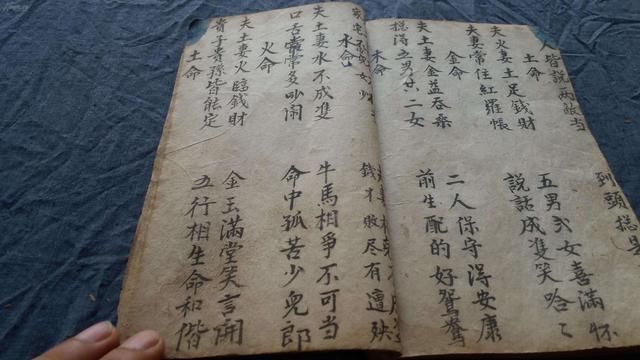 人皆説
到頭總是
土命
夫火妻土足錢財 五男弍女喜滿怀
夫妻常住紅羅帳 説話成雙笑哈々
金命
夫土妻金益 二人保守得安康
總得五男共二女 前生配的好鴛鴦
木命
錢才敗尽有遭殃
水命
夫土妻水不成雙 牛馬相爭不可当
口舌常常多吵闹 命中孤苦少児郎
火命
夫土妻火臨錢財 金玉滿堂笑言開
貴子貴孫皆能定 五行相生命和偕
土命